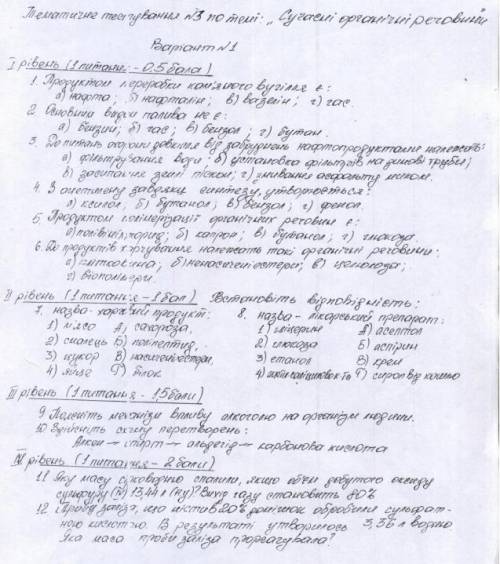 Тематичне тестування №3 по темі: „Сучасні органічні речовини"
Варіант №1
I рівень (1 питання - 0.5 бала)
1. Продуктом переробки кам'яного вугілля є:
а) нафта; б) нафталін; в) вазелін; г) гас.
2. Основним видом палива не є:
а) бензин; б) гас; в) бензол; г) бутан.
3. До питань охорони довкілля від забруднень нафтопродуктами належать:
а) фільтрування води; б) установка фільтрів на димові трубы;
в) засипання землі піском; г) змивання асфальту милом.
4. З ацетилену завдяки синтезу, утворюється:
а) ксилол; б) бутанол; в) бензол; г) фенол.
5. Продуктом полімеризації органічних речовин є:
а) полівінілхлорид; б) капрон; в) бутанол; г) глюкоза.
6. До продуктів харчування належать такі органічні речовини:
а) клітковина; б) ненасичені естери; в) целюлоза;
г) біополімери.
II рівень (1 питання - 1 бал) Встановіть відповідність:
7. назва - харчовий продукт: 8. назва - лікарський препарат:
1) м'ясо А) сахароза, 1) гліцерин А) асептол
2) смалець Б) поліпептид, 2) глюкоза Б) аспірин
3) цукор В) насичені естери, 3) етанол В) крем
4) яйце Г) білок 4) Г) сироп від кашлю
III рівень (1 питання - 1,5 бали)
9. Поясніть механізм впливу алкоголю на організм людини.
10. Здійсніть схему перетворень:
Алкен → спирт → альдегід → карбонова кислота
IV рівень (1 питання - 2 бали)
11. Яку масу сірководню спалили, якщо об'єм добутого оксиду
сульфуру (IV) 13,44 л (н.у)? Вихід газу становить 80%
12. Пробу заліза, що містив 20% домішок обробили сульфат-
ною кислотою. В результаті утворилось 3,36 л водню
Яка маса проби заліза прореагувала?